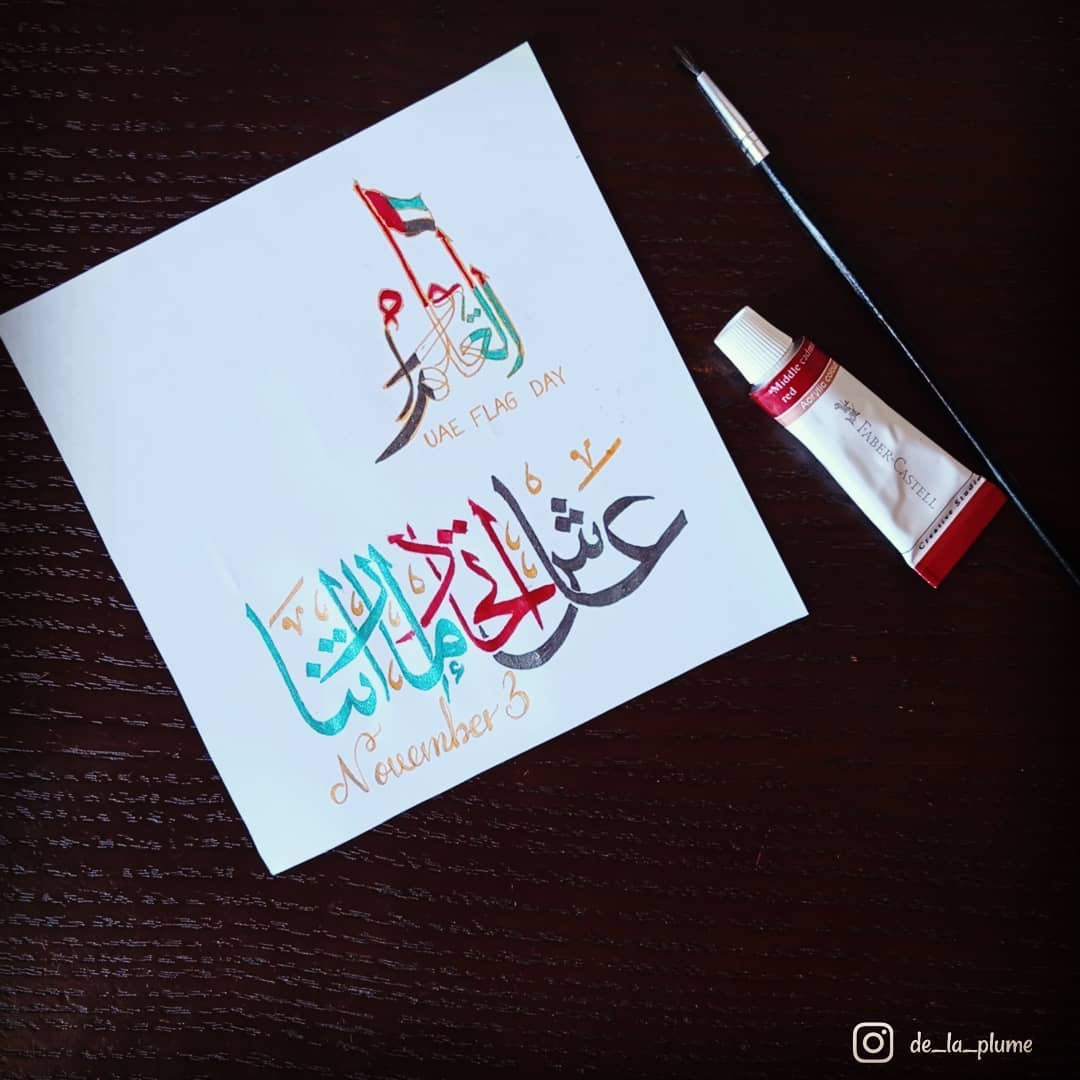 يوم العلم
UAE FLAG DAY
عاش اتحاد إماراتنا
November 3
Middle
red
Acrylic
FABER-CASTELL
Creative Studio
de_la_plume